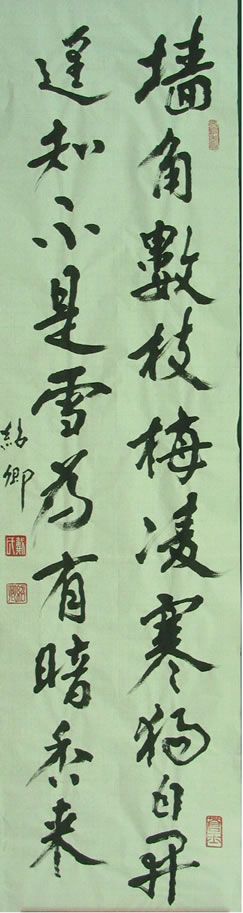 墙角數枝梅凌寒獨自開
遥知不是雪為有暗香来
紹卿